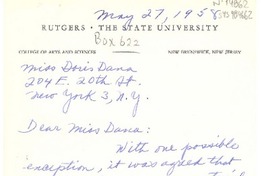 May 27, 1958
RUTGERS · THE STATE UNIVERSITY
Box 622
COLLEGE OF ARTS AND SCIENCES NEW BRUNSWICK, NEW JERSEY
Miss Doris Dana
204 E. 20th St.
New York 3, N.Y.
Dear Miss Dana:
With one possible
exception, it was agreed that